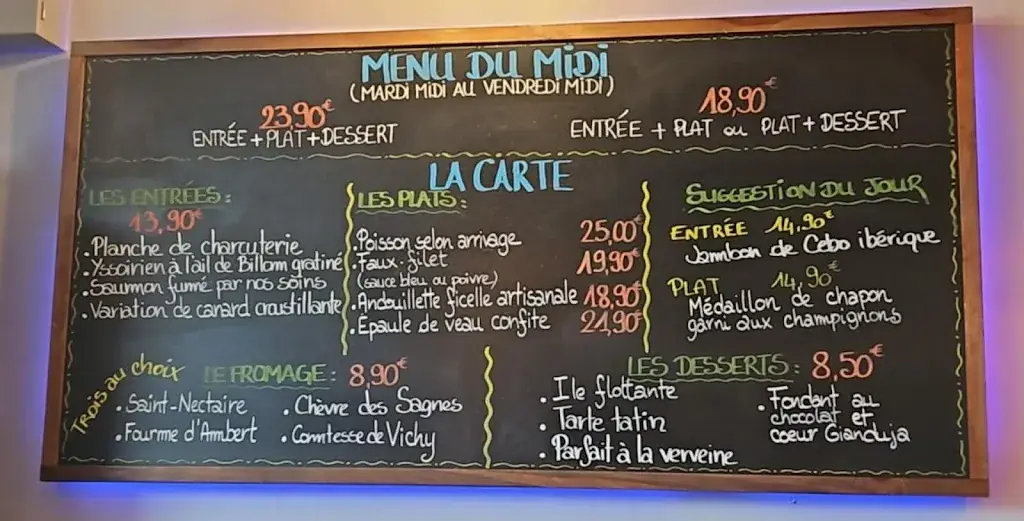 MENU DU MIDI
(MARDI MIDI AU VENDREDI MIDI)
23,90€
ENTRÉE + PLAT + DESSERT
18,90€
ENTRÉE + PLAT ou PLAT + DESSERT
LA CARTE
LES ENTRÉES :
13,90€
. Planche de charcuterie
. Yssoirien à l'ail de Billom gratiné
. Saumon fumé par nos soins
. Variation de canard croustillante
LES PLATS :
. Poisson selon arrivage 25,00€
. Faux-filet 19,90€
(sauce bleu ou poivre)
. Andouillette ficelle artisanale 18,90€
. Épaule de veau confite 21,90€
SUGGESTION DU JOUR
ENTRÉE 14,90€
Jambon de Cebo ibérique
PLAT 14,90€
Médaillon de chapon
garni aux champignons
Trois au choix
LE FROMAGE : 8,90€
. Saint-Nectaire
. Fourme d'Ambert
. Chèvre des Sagnes
. Comtesse de Vichy
LES DESSERTS : 8,50€
. Ile flottante
. Tarte tatin
. Parfait à la verveine
. Fondant au
chocolat et
coeur Gianduja